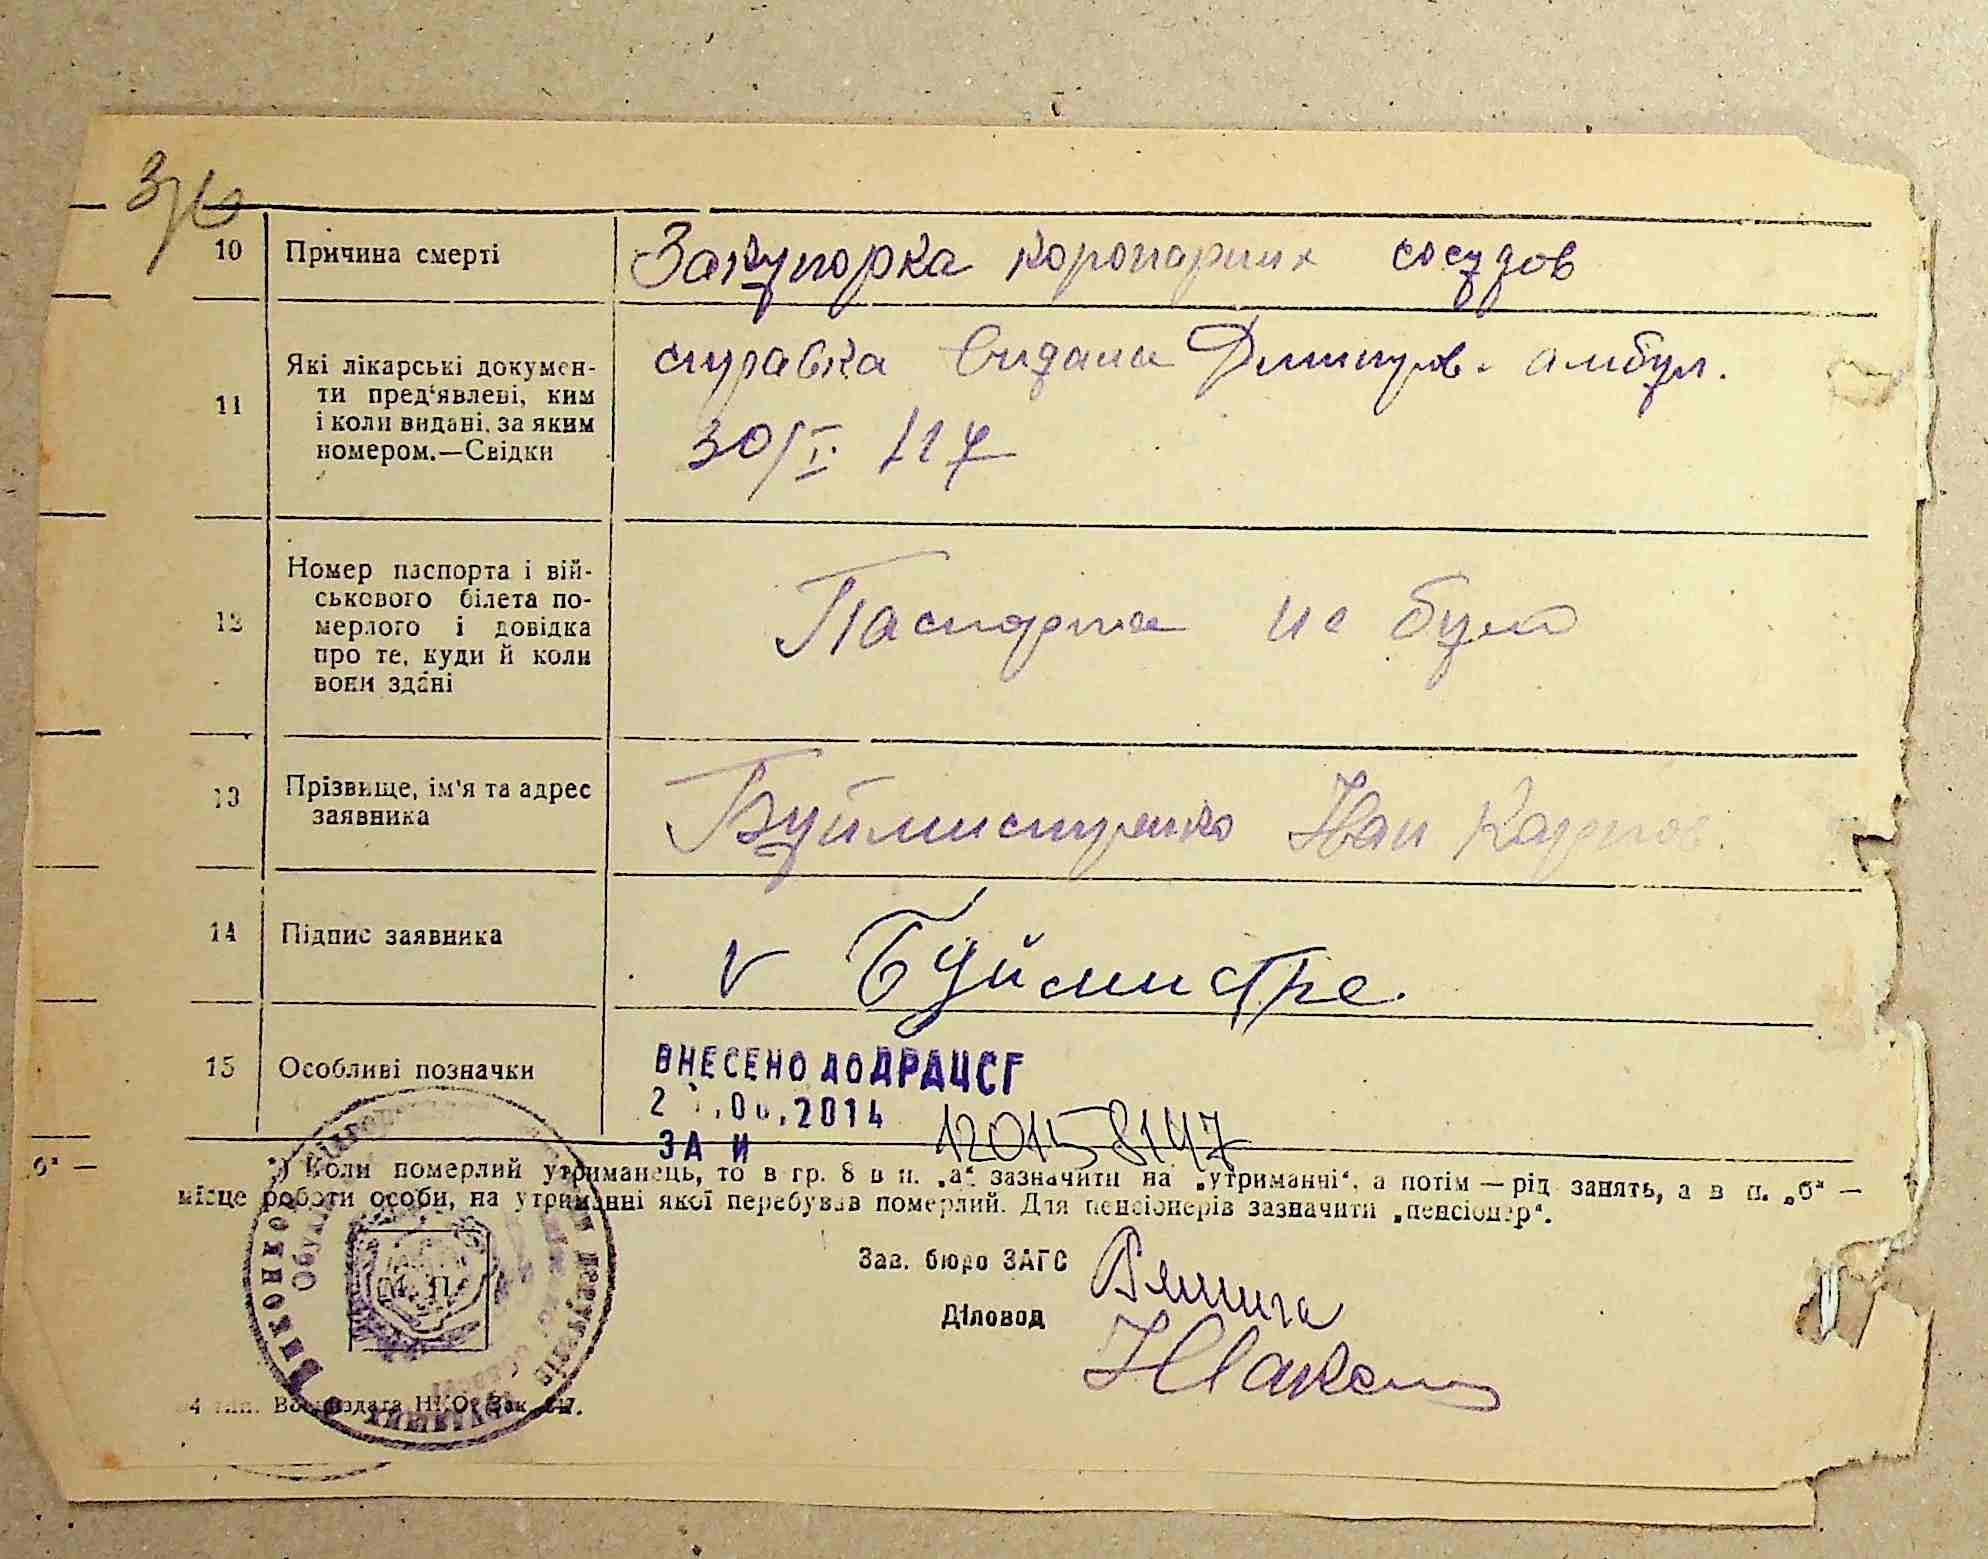 10 Причина смерті Закупорка коронарних сосудов
11 Які лікарські докумен-
ти пред'явлені, ким
і коли видані, за яким
номером.—Свідки
справка видана Дмитров. амбул.
30/I.
12 Номер паспорта і вій-
ськового білета по-
мерлого і довідка
про те, куди й коли
вони здані
Паспорта не було
13 Прізвище, ім'я та адрес
заявника
Буймистренко Иван Карпов.
14 Підпис заявника V Буймистре.
15 Особливі позначки
ВНЕСЕНО ДО ДРАЦСГ
2014
ЗА И 120158147
б" —
*) Коли померлий утриманець, то в гр. 8 в п. „а" зазначити на „утриманні", а потім — рід занять, а в п. „б" —
місце роботи особи, на утриманні якої перебував померлий. Для пенсіонерів зазначити „пенсіонер".
Зав. бюро ЗАГС
Діловод
М. П.
4 тип. НКО. Зак.